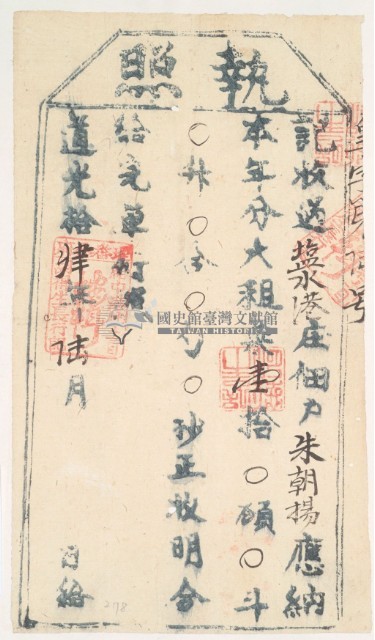 執照
記收過塩水港庄佃户朱朝揚應納
本年分大租壹拾〇碩〇斗
〇升〇合〇勺〇抄正收明合
給完單
道光拾肆年陸月
日給
國史館臺灣文獻館
TAIWAN HISTORICA
278